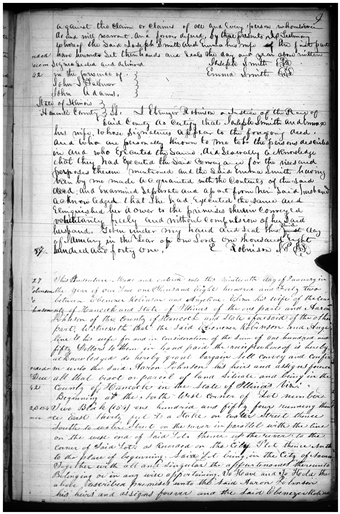 against the claim or claims of all and every person whomsoever
do and will warrant and forever defend by these presents. In Testimony
whereof the said Joseph Smith and Emma his wife of the first part
have hereunto set their hands and seals the day and year above written
Signed sealed and delivered Joseph Smith
in the presence of Emma Smith
John S. Fullmer
John Adams.
State of Illinois
Hancock County SS. I Ebenezer Robinson a Justice of the Peace of
said County do certify that Joseph Smith and Emma
his wife, whose signatures appear to the foregoing deed
and who are personally known to me to be the persons described
in and who executed the same did severally acknowledge
that they had executed the said conveyance for the uses and
purposes therein mentioned and the said Emma Smith having
been by me made acquainted with the contents of the said
deed and examined separate and apart from her said husband
acknowledged that she had executed the same and
relinquished her dower to the premises therein conveyed
voluntarily freely and without compulsion of her said
husband. Given under my hand and seal the first day
of January in the year of our Lord one thousand eight
hundred and forty one. E. Robinson J.P.
This Indenture made and entered into this nineteenth day of January in
the year of our Lord one thousand eight hundred and forty two
between Ebenezer Robinson and Angeline Eliza his wife of the County
of Hancock and State of Illinois of the one part and Aaron
Johnson of the County of Hancock and State aforesaid of the other
part, Witnesseth that the said Ebenezer Robinson and Angeline
his wife for and in consideration of the sum of one hundred and
fifty Dollars to them in hand paid the receipt whereof is hereby
acknowledged do hereby grant bargain sell convey and confirm
unto the said Aaron Johnson his heirs and assigns forever
all that tract or parcel of land situate and being in the
County of Hancock in the State of Illinois Viz.
Beginning at the South West corner of Lot number
Two Block (154) one hundred and fifty four running thence
South to Water Street
on the west end of said lot thence
corner of said Lot as recorded on the City Plot thence south
to the place of beginning. Said Lot being in the City of Nauvoo
Together with all and singular the appurtenances thereunto
Belonging or in any wise appertaining. To Have and To Hold the
above described premises unto the said Aaron Johnson
his heirs and assigns forever and the said Ebenezer Robinson